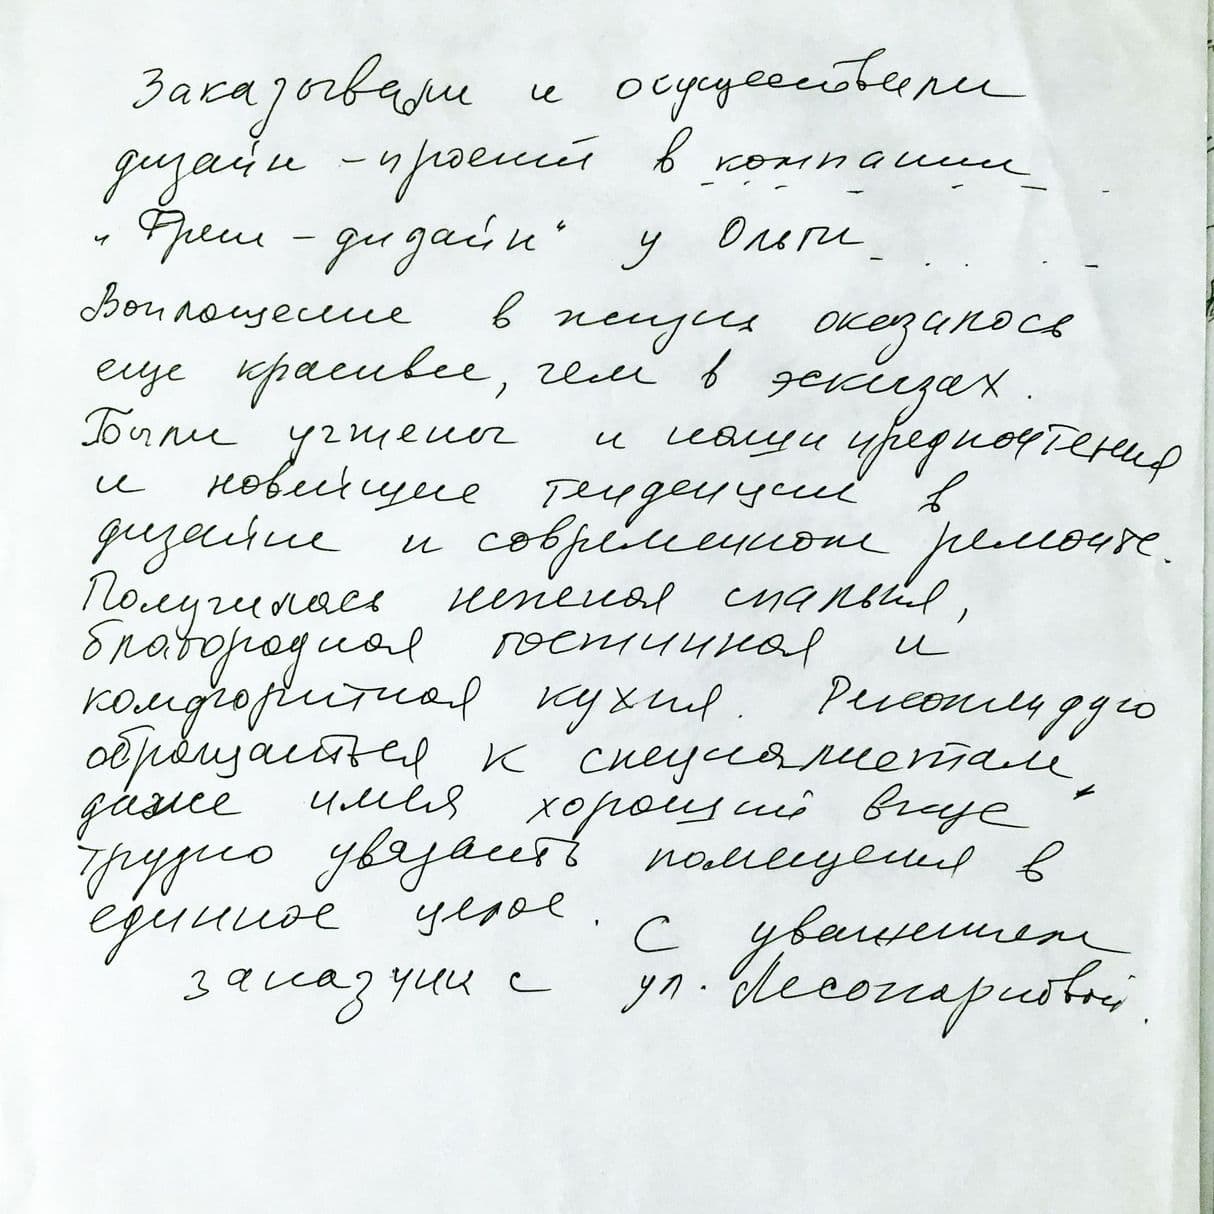 Заказывали и осуществили
дизайн-проект в компании
„Фреш-дизайн“ у Ольги
Воплощение в жизнь оказалось
еще красивее, чем в эскизах.
Были учтены и наши предпочтения
и новейшие тенденции в
дизайне и современном ремонте.
Получилась нежная спальня,
благородная гостинная и
комфортная кухня. Рекомендую
обращаться к специалистам,
даже имея хороший вкус
трудно увязать помещения в
единное целое. С уважением
заказчик с ул. Лесопарковой.